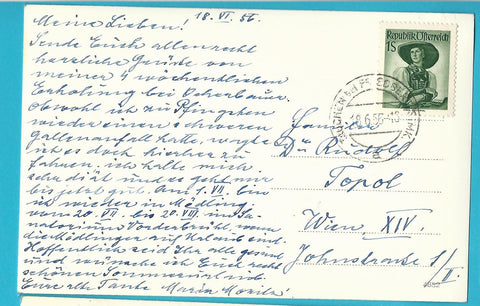 18. VI. 56.
Meine Lieben!
Sende Euch allen recht
herzliche Grüße von
meiner 4 wöchentlichen
Erholung bei
obwohl ich zu Pfingsten
wieder einen schweren
Gallenanfall hatte, wagte
ich es doch hierher zu
fahren. ich halte mich
sehr diät und es geht mir
bis jetzt gut. Am 1. VII. bin
ich wieder in Mödling,
vom 20. VII bis 20. VIII im Sa-
natorium Vorderbrühl, wenn
die Mödlinger auf Urlaub sind.
Hoffentlich seid Ihr alle gesund
und wünsche ich Euch recht
schönen Sommerurlaub.
Eure alte Tante Maria
Republik Österreich
1S
18.6.56
Familie
Dr. Rudolf
Topol
Wien, XIV.
Johnstrasse 1/II